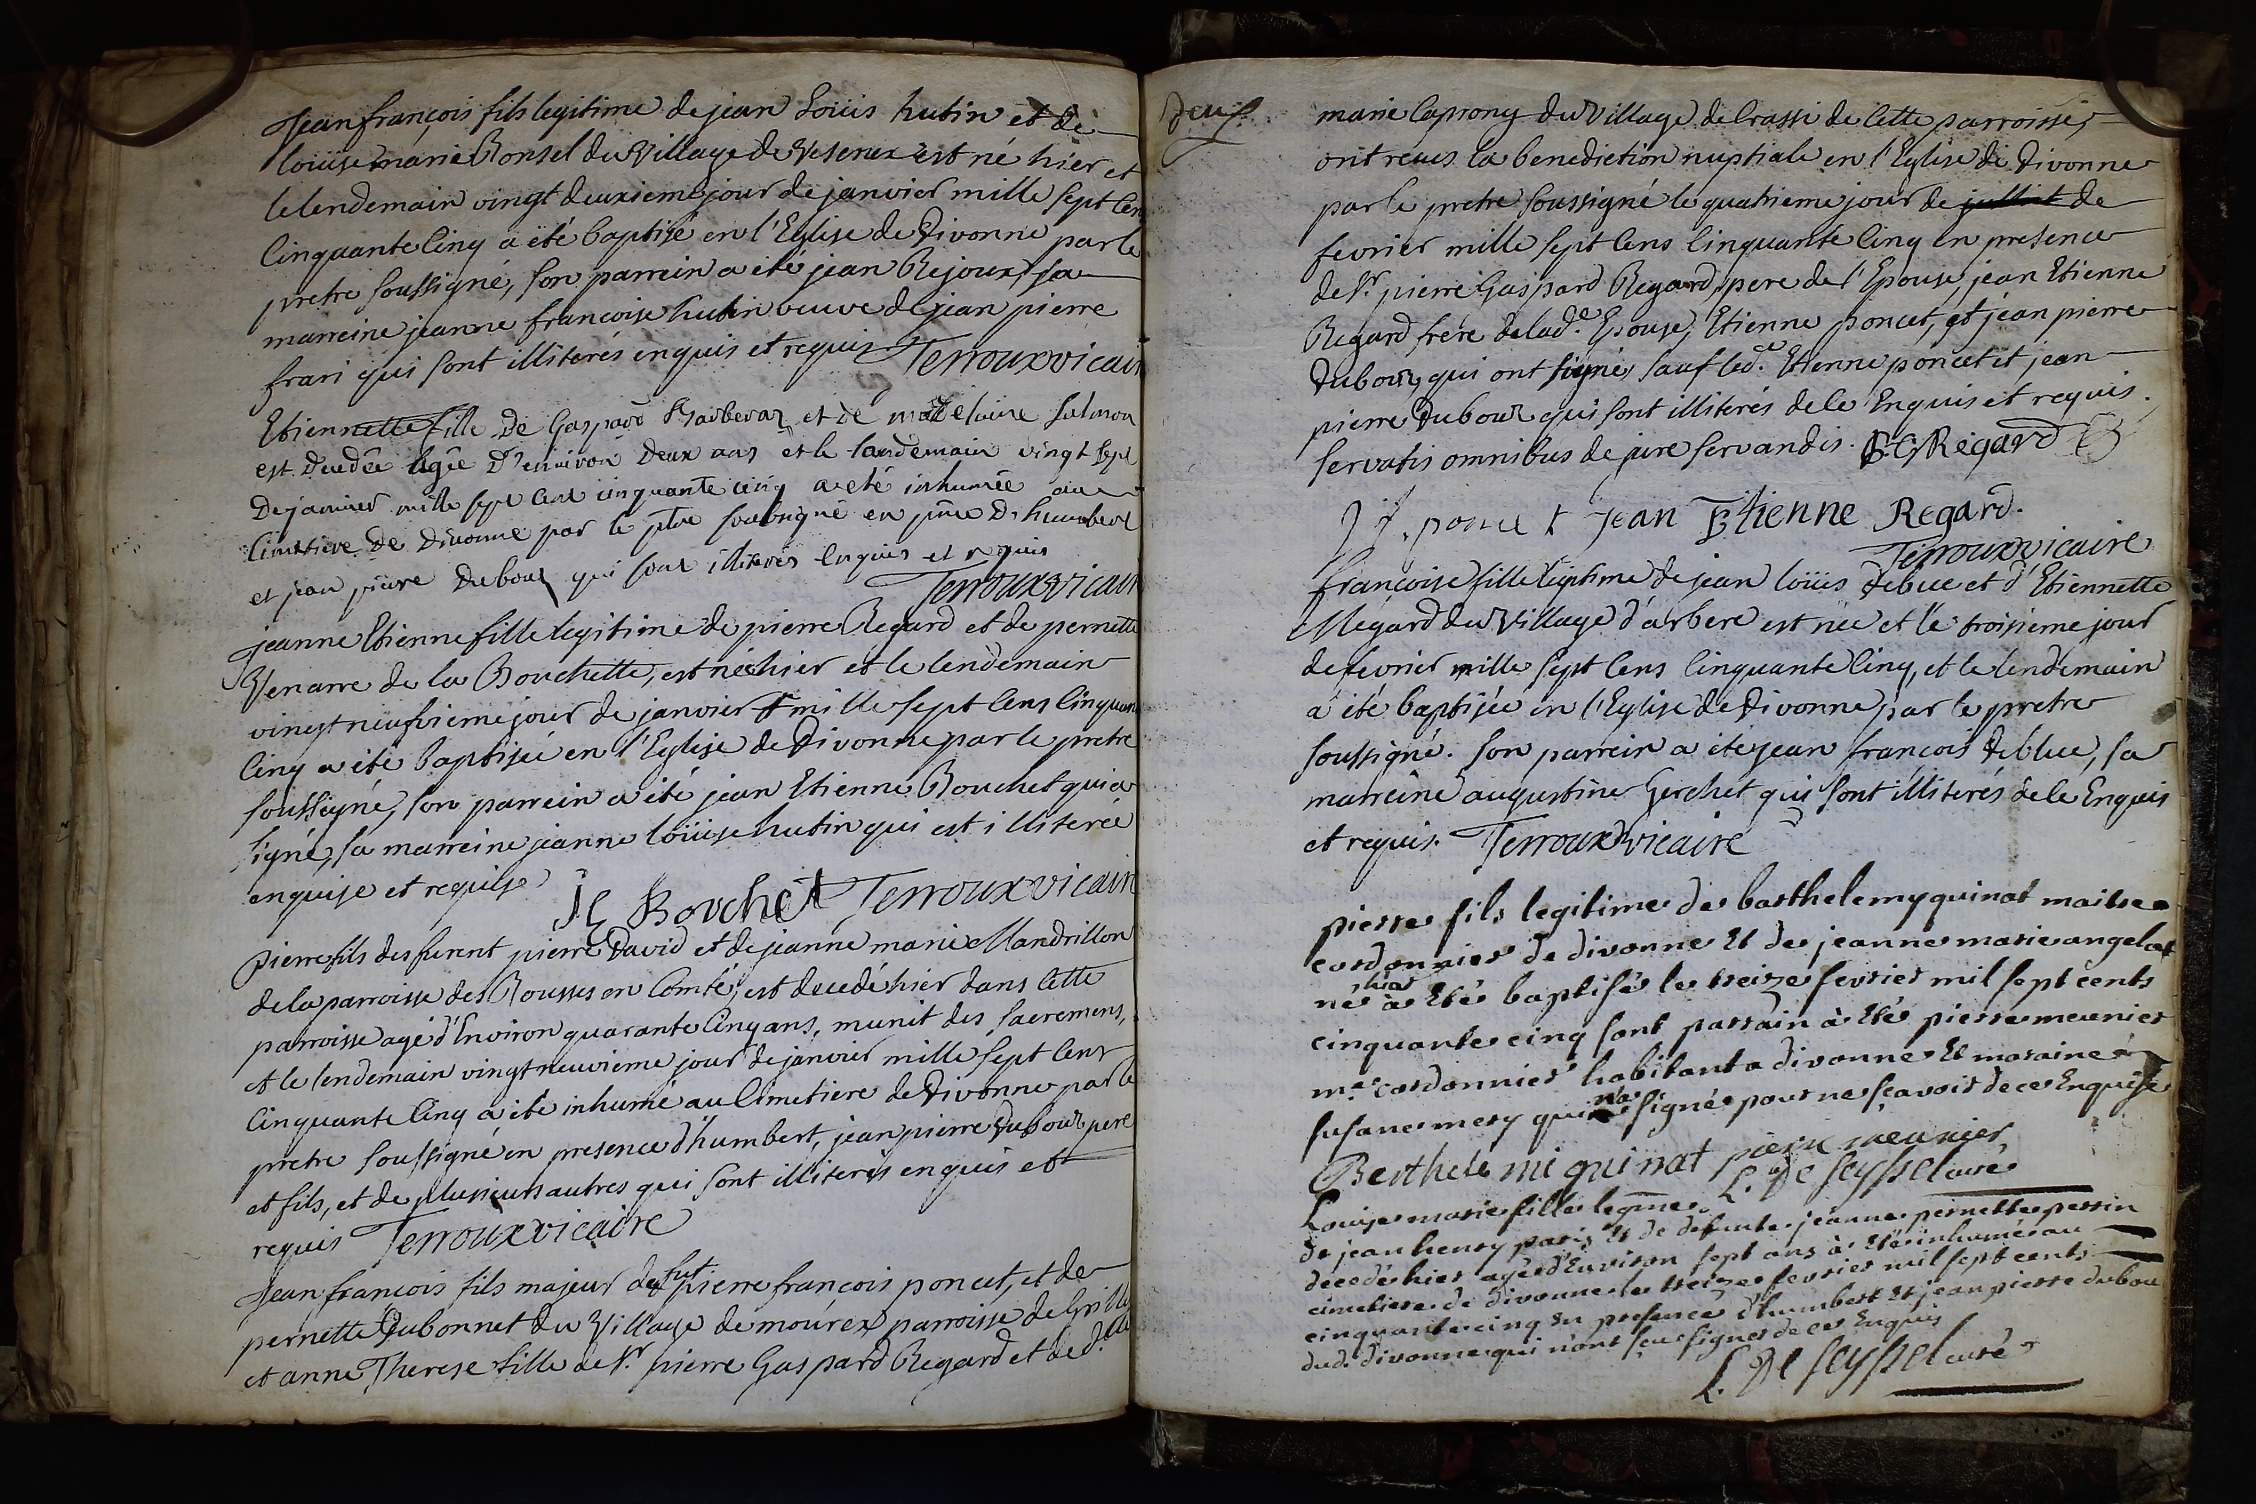 Jean françois fils legitime de jean Loüis hutin et de
loüise marie Bonsel du Village de Vesenex est né hier et
le lendemain vingt deuxieme jour de janvier mille sept Cen
Cinquante Cinq a été baptisé en l'Eglise de Divonne par le
pretre soussigné, son parrein a été jean Rejoux, sa
marreine jeanne francoise hutin veuve de jean pierre
frari qui sont illiterés enquis et requis Terroux vicair
Etiennette fille De Gaspard Barberaz et de madelaine Salmon
est decedée agée D'environ Deux ans et le landemain vingt sept
De janvier mille sept cent cinquante cinq a eté inhumée au
Cimetiere De Divonne par le ptre soubsigné en pnce D'humbert
et jean pierre Dubouz qui sont illiterés enquis et requis
Terroux vicair
jeanne Etienne fille legitime de pierre Regard et de pernette
Venarre de la Bouchette, est née hier et le lendemain
vingt neufvieme jour de janvier mille sept Cens Cinquan
Cinq a été baptisée en l'Eglise de Divonne par le pretre
soussigné, son parrein a été jean Etienne Bouchet qui a
signé, sa marreine jeanne loüise hutin qui est illiterée
enquise et requise
JE Bouchet Terroux vicair
Pierre fils des furent pierre David et de jeanne marie Mandrillon
de la parroisse des Rousses en Comté, est decedé hier dans Cette
parroisse agé d'Environ quarante Cinq ans, munit des sacremens,
et le lendemain vingt neuvieme jour de janvier mille sept Cens
Cinquante Cinq a été inhumé au Cimetiere de Divonne par le
pretre soussigné en presence d'humbert, jean pierre Dubouz pere
et fils, et de plusieurs autres qui sont illiterés enquis et
requis Terroux vicaire
Jean francois fils majeur de fut pierre françois poncet, et de
pernette Dubonnet du Village de mourex parroisse de Grilly
et anne Therese fille de Sr. pierre Gaspard Regard et de d.lle
marie Caprony du Village de Crassi de Cette parroisse,
ont reçus la benediction nuptiale en l'Eglise de Divonne
par le pretre soussigné le quatrieme jour de juillet de
fevrier mille sept Cens Cinquante Cinq en presence
de Sr. pierre Gaspard Regard pere de l'Epouse, jean Etienne
Regard frere de lad.e Epouse, Etienne poncet, et jean pierre
Dubouz, qui ont signé, sauf led.e Etienne poncet et jean
pierre Dubouz qui sont illiterés de Ce Enquis et requis.
servatis omnibus de jure servandis. P.G. Regard
J f. poncet Jean Etienne Regard.
Terroux vicaire
françoise fille legitime de jean loüis Deblue et d'Etiennette
Mégard du Village d'arbere est née et le troisieme jour
de fevrier mille sept Cens Cinquante Cinq, et le lendemain
a été baptisée en l'Eglise de Divonne par le pretre
soussigné. son parrein a été jean françois Deblue, sa
marreine augustine Gerchet qui sont illiterés de Ce Enquis
et requis. Terroux vicaire
pierre fils legitime de barthelemy quinat maitre
cordonnier de divonne Et de jeanne marie angelot
né hier à Eté baptisé le treize fevrier mil sept cents
cinquante cinq sont parrain à Eté pierre meunier
m.e cordonnier habitant a divonne Et maraine
susane mery qui n'a signée pour ne sçavoir de ce Enquise
Berthele mi qui nat pierre meunier
L. De seyssel curé
Louise marie fille legme.
de jean henry paris Et de defunte jeanne pernette perrin
decedé hier agée d'Environ sept ans à Eté inhumée au
cimetiere de divonne le treize fevrier mil sept cents
cinquante cinq En presence d'humbert Et jean pierre dubou
dud. divonne qui n'ont sçeu signer de ce Enquis
L. De seyssel curé